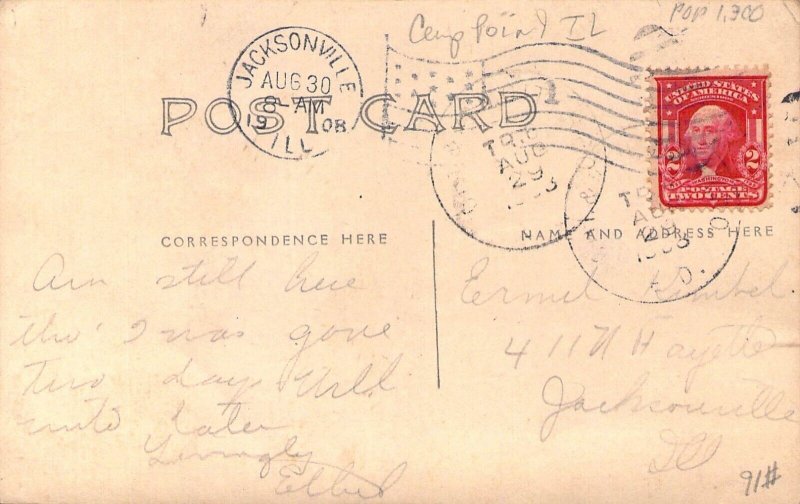 Camp Point IL
POP 1,300
JACKSONVILLE
AUG 30
8-AM
1908
ILL.
POST CARD
UNITED STATES
OF AMERICA
2 2
WASHINGTON
POSTAGE
TWO CENTS
TR.
AUG
29
TR.
AUG
29
1908
R.P.O.
CORRESPONDENCE HERE
NAME AND ADDRESS HERE
Am still here
tho' I was gone
two days Will
write later
Lovingly
Ethel
Ermel Kimbel
411 N Fayette
Jacksonville
Ill
91#